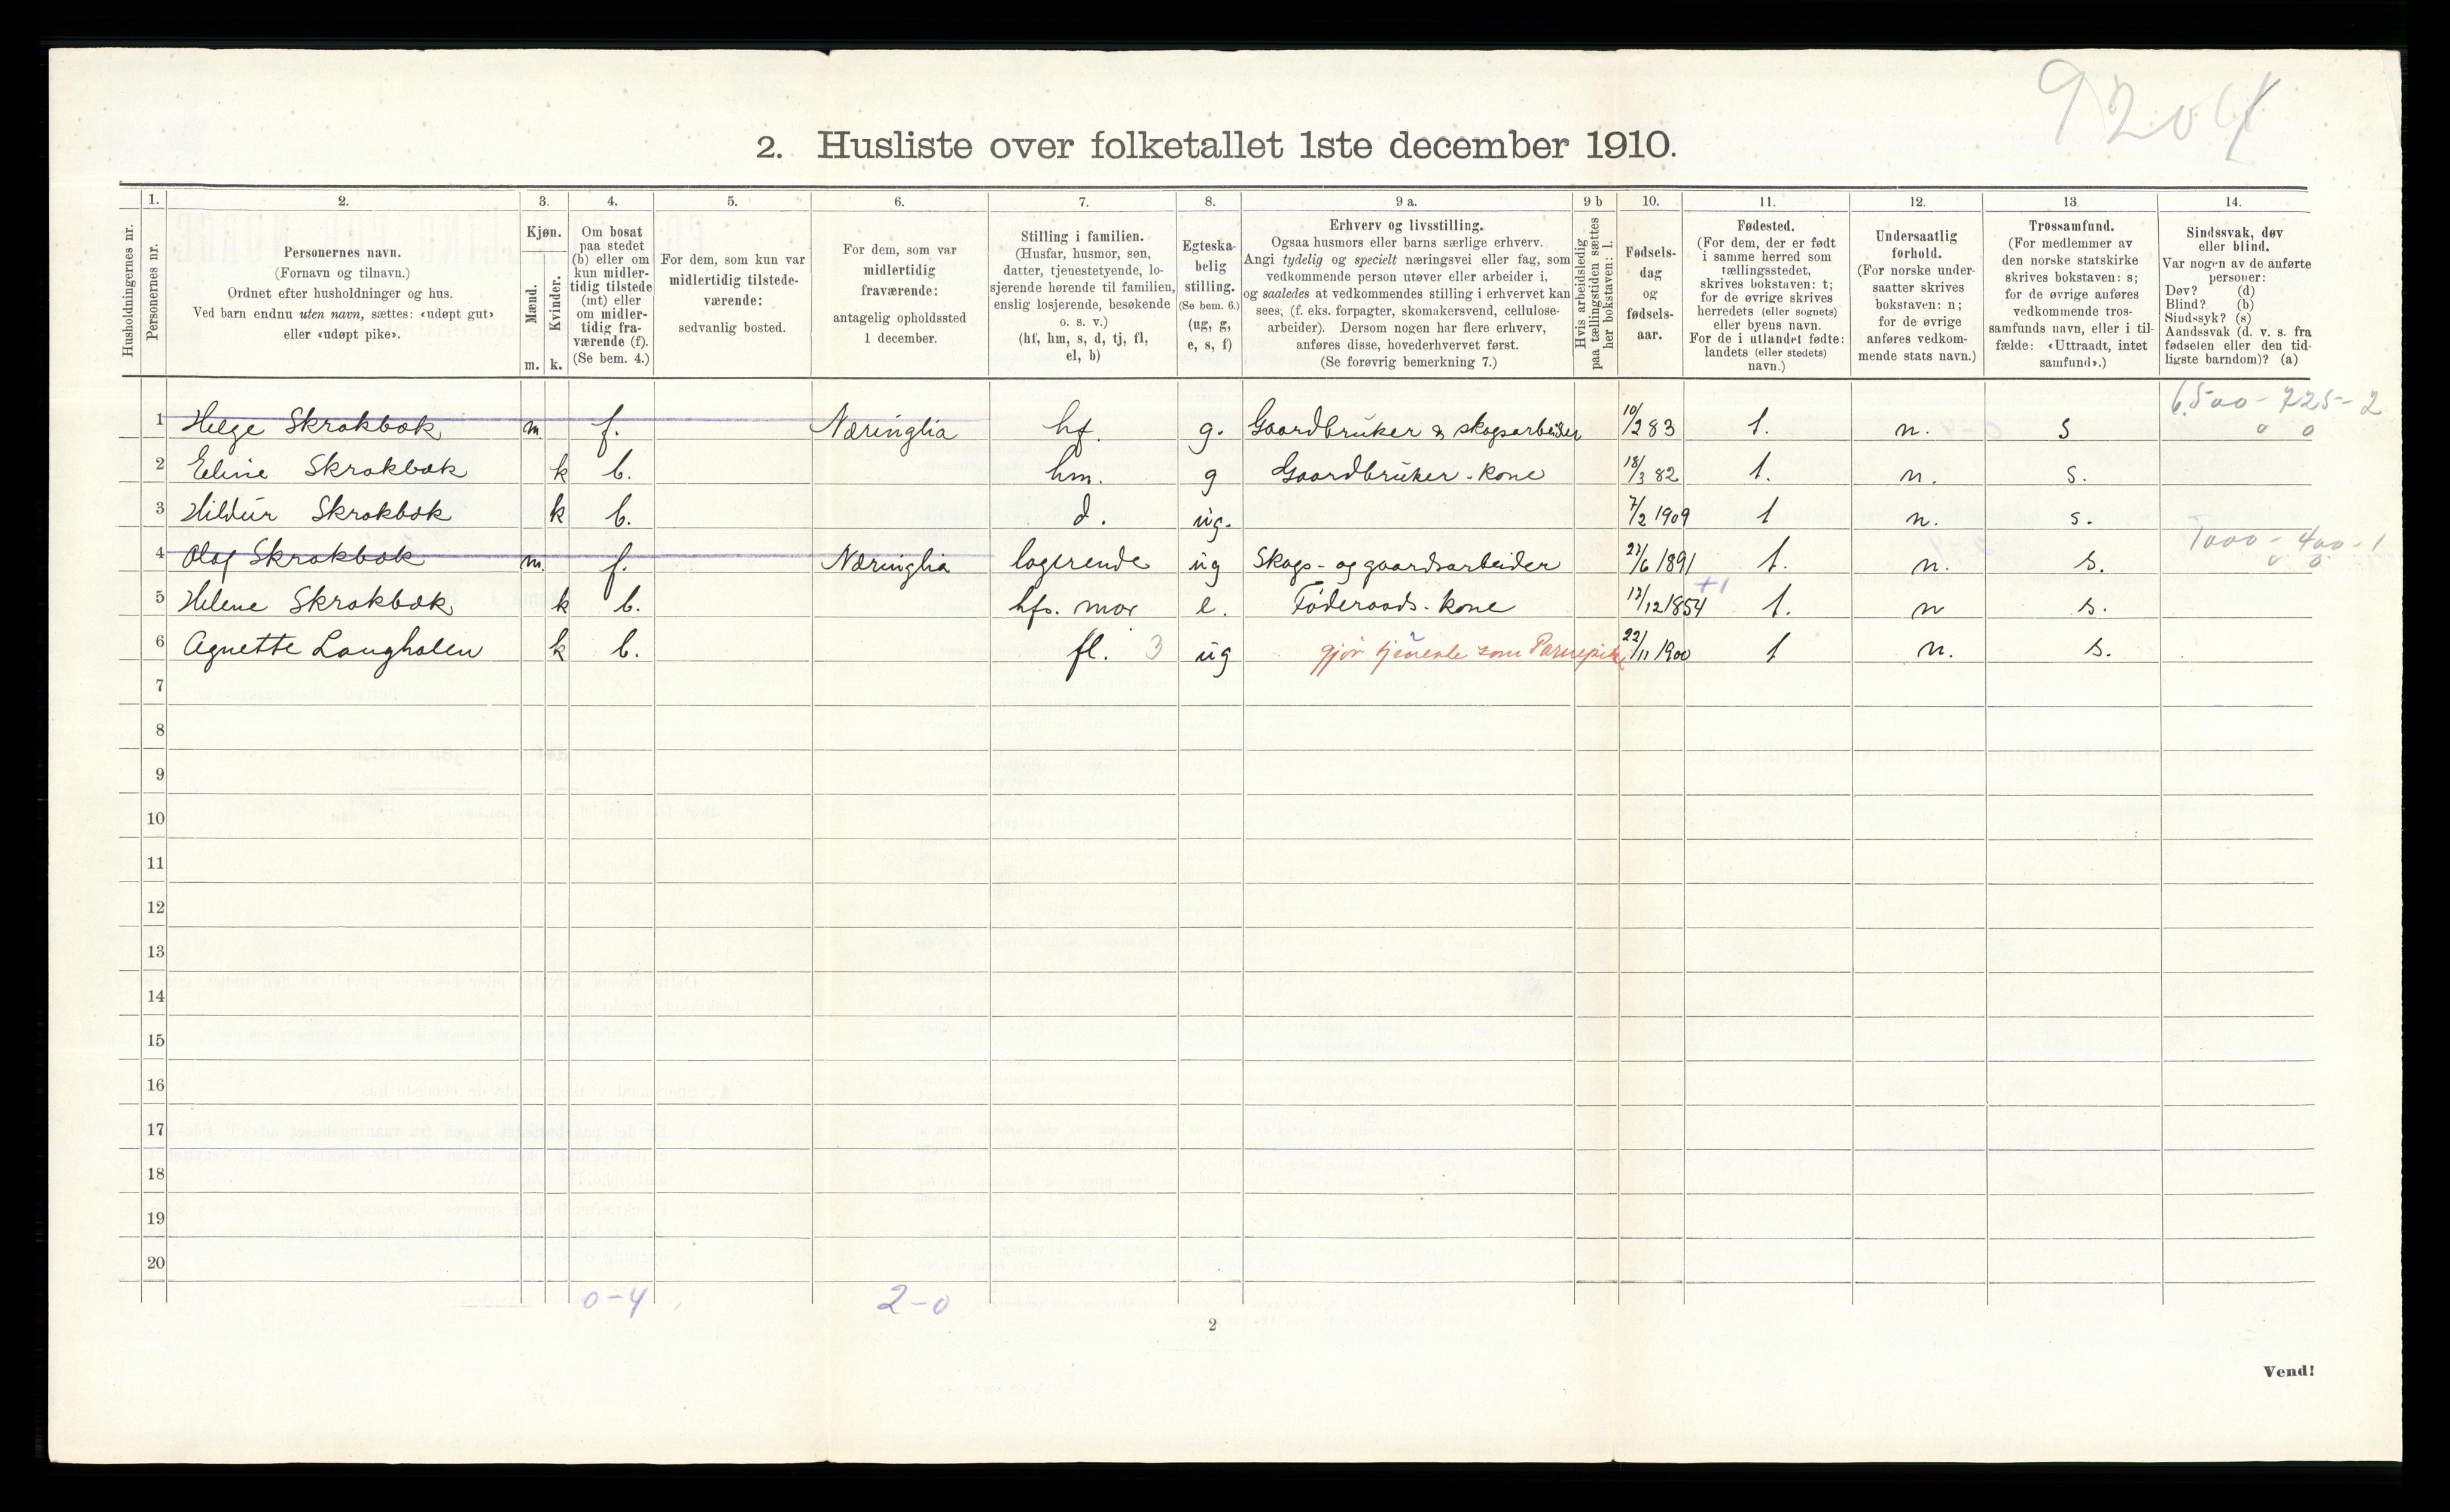 9204
2. Husliste over folketallet 1ste december 1910.
Husholdningernes nr.
1.
Personernes nr.
2.
Personernes navn.
(Fornavn og tilnavn.)
Ordnet efter husholdninger og hus.
Ved barn endnu uten navn, sættes: «udøpt gut»
eller «udøpt pike».
3.
Kjøn.
Mænd.
Kvinder.
m. k.
4.
Om bosat
paa stedet
(b) eller om
kun midler-
tidig tilstede
(mt) eller
om midler-
tidig fra-
værende (f).
(Se bem. 4.)
5.
For dem, som kun var
midlertidig tilstede-
værende:
sedvanlig bosted.
6.
For dem, som var
midlertidig
fraværende:
antagelig opholdssted
1 december.
7.
Stilling i familien.
(Husfar, husmor, søn,
datter, tjenestetyende, lo-
sjerende hørende til familien,
enslig losjerende, besøkende
o. s. v.)
(hf, hm, s, d, tj, fl,
el, b)
8.
Egteska-
belig
stilling.
(Se bem. 6.)
(ug, g,
e, s, f)
9 a.
Erhverv og livsstilling.
Ogsaa husmors eller barns særlige erhverv.
Angi tydelig og specielt næringsvei eller fag, som
vedkommende person utøver eller arbeider i,
og saaledes at vedkommendes stilling i erhvervet kan
sees, (f. eks. forpagter, skomakersvend, cellulose-
arbeider). Dersom nogen har flere erhverv,
anføres disse, hovederhvervet først.
(Se forøvrig bemerkning 7.)
9 b
Hvis arbeidsledig
paa tællingstiden sættes
her bokstaven: l.
10.
Fødsels-
dag
og
fødsels-
aar.
11.
Fødested.
(For dem, der er født
i samme herred som
tællingsstedet,
skrives bokstaven: t;
for de øvrige skrives
herredets (eller sognets)
eller byens navn.
For de i utlandet fødte:
landets (eller stedets)
navn.)
12.
Undersaatlig
forhold.
(For norske under-
saatter skrives
bokstaven: n;
for de øvrige
anføres vedkom-
mende stats navn.)
13.
Trossamfund.
(For medlemmer av
den norske statskirke
skrives bokstaven: s;
for de øvrige anføres
vedkommende tros-
samfunds navn, eller i til-
fælde: «Uttraadt, intet
samfund».)
14.
Sindssvak, døv
eller blind.
Var nogen av de anførte
personer:
Døv? (d)
Blind? (b)
Sindssyk? (s)
Aandssvak (d. v. s. fra
fødselen eller den tid-
ligste barndom)? (a)
6500 - 725 - 2
1 Helge Skrakbæk m. f. Næringlia hf. g. Gaardbruker & skogsarbeider 10/2 83 t. n. s o o
2 Eline Skrakbæk k b. hm. g Gaardbruker-kone 18/3 82 t. n. s.
3 Hildur Skrakbæk k b. d. ug. 7/2 1909 t n. s.
1000 - 400 - 1
4 Olaf Skrakbæk m. f. Næringlia logerende ug Skogs- og gaardsarbeider 27/6 1891 t. n. s. o o
+1
5 Helene Skrakbæk k b. hfs. mor e. Føderaads-kone 17/12 1854 t. n s.
6 Agnette Langholen k b. fl. 3 ug gjør tjeneste som Barnepike 22/11 1900 t n. s.
7
8
9
10
11
12
13
14
15
16
17
18
19
20
0-4 2-0
2
Vend!